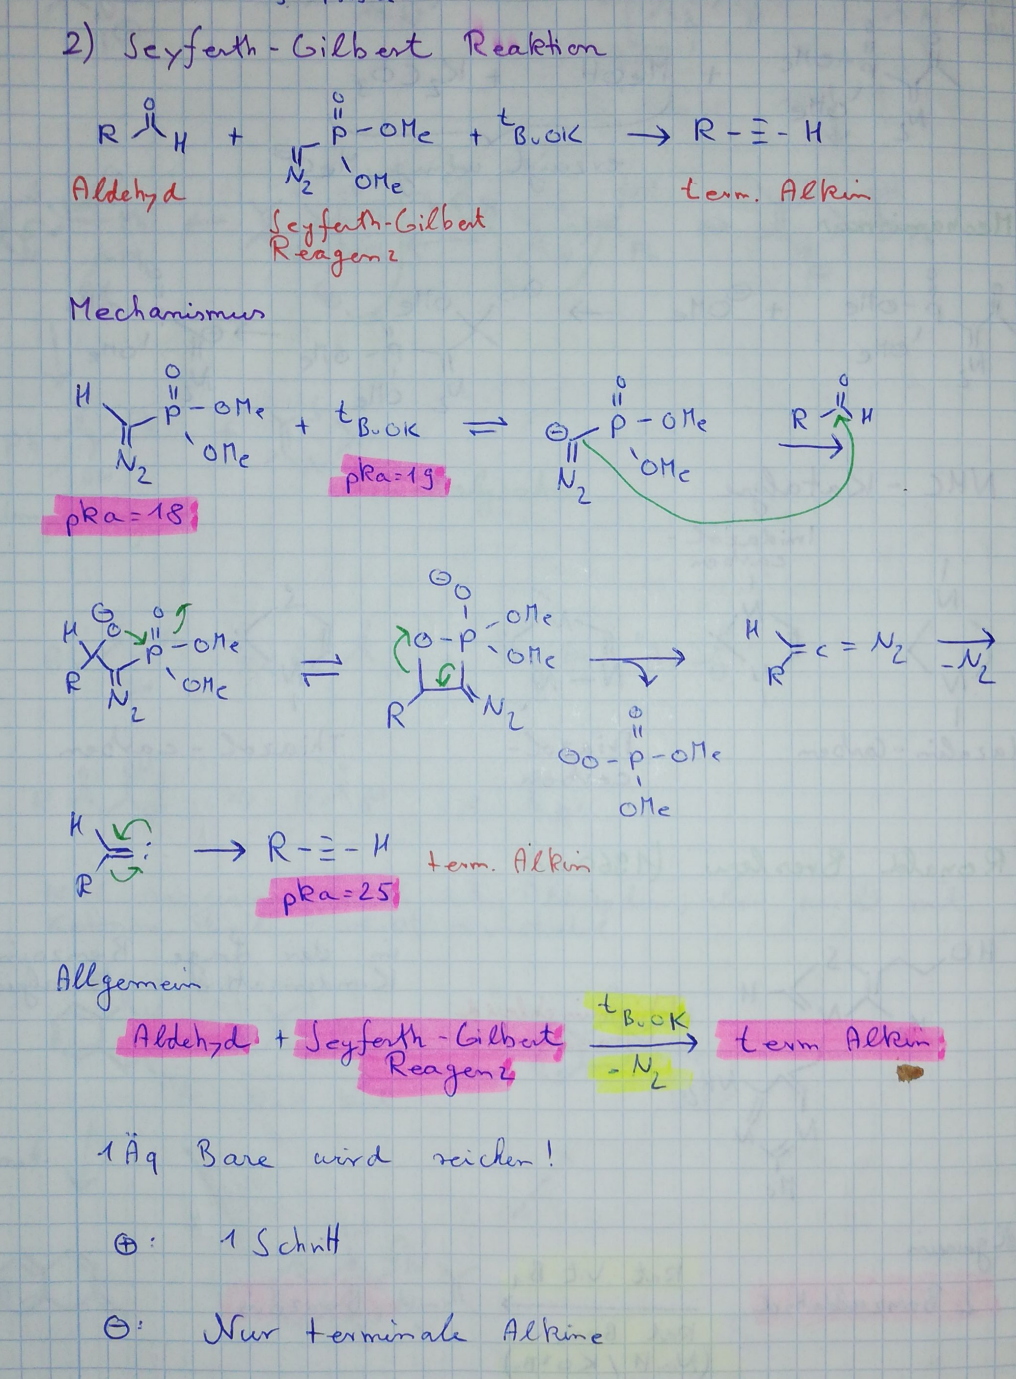 2) Seyferth-Gilbert Reaktion
O O
R H + P-OMe + tBuOK → R-≡-H
N2 OMe
Aldehyd Seyferth-Gilbert Reagenz term. Alkin
Mechanismus
O O O
H P-OMe + tBuOK ⇌ ⊖ P-OMe → R H
N2 OMe N2 OMe
pka=18 pka=19
⊖ O O ⊖ O
H P-OMe ⇌ O-P OMe → H
R OMe OMe R =C=N2 →
N2 R N2 -N2
O
⊖O-P-OMe
OMe
H
R : → R-≡-H term. Alkin
pka=25
Allgemein
Aldehyd + Seyferth-Gilbert Reagenz tBuOK → term Alkin
-N2
1 Äq Base wird reichen!
⊕: 1 Schritt
⊖: Nur terminale Alkine